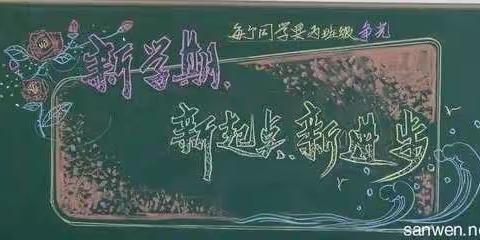 每个同学要为班级争光
新学期、
新起点、新进步
sanwen.ne